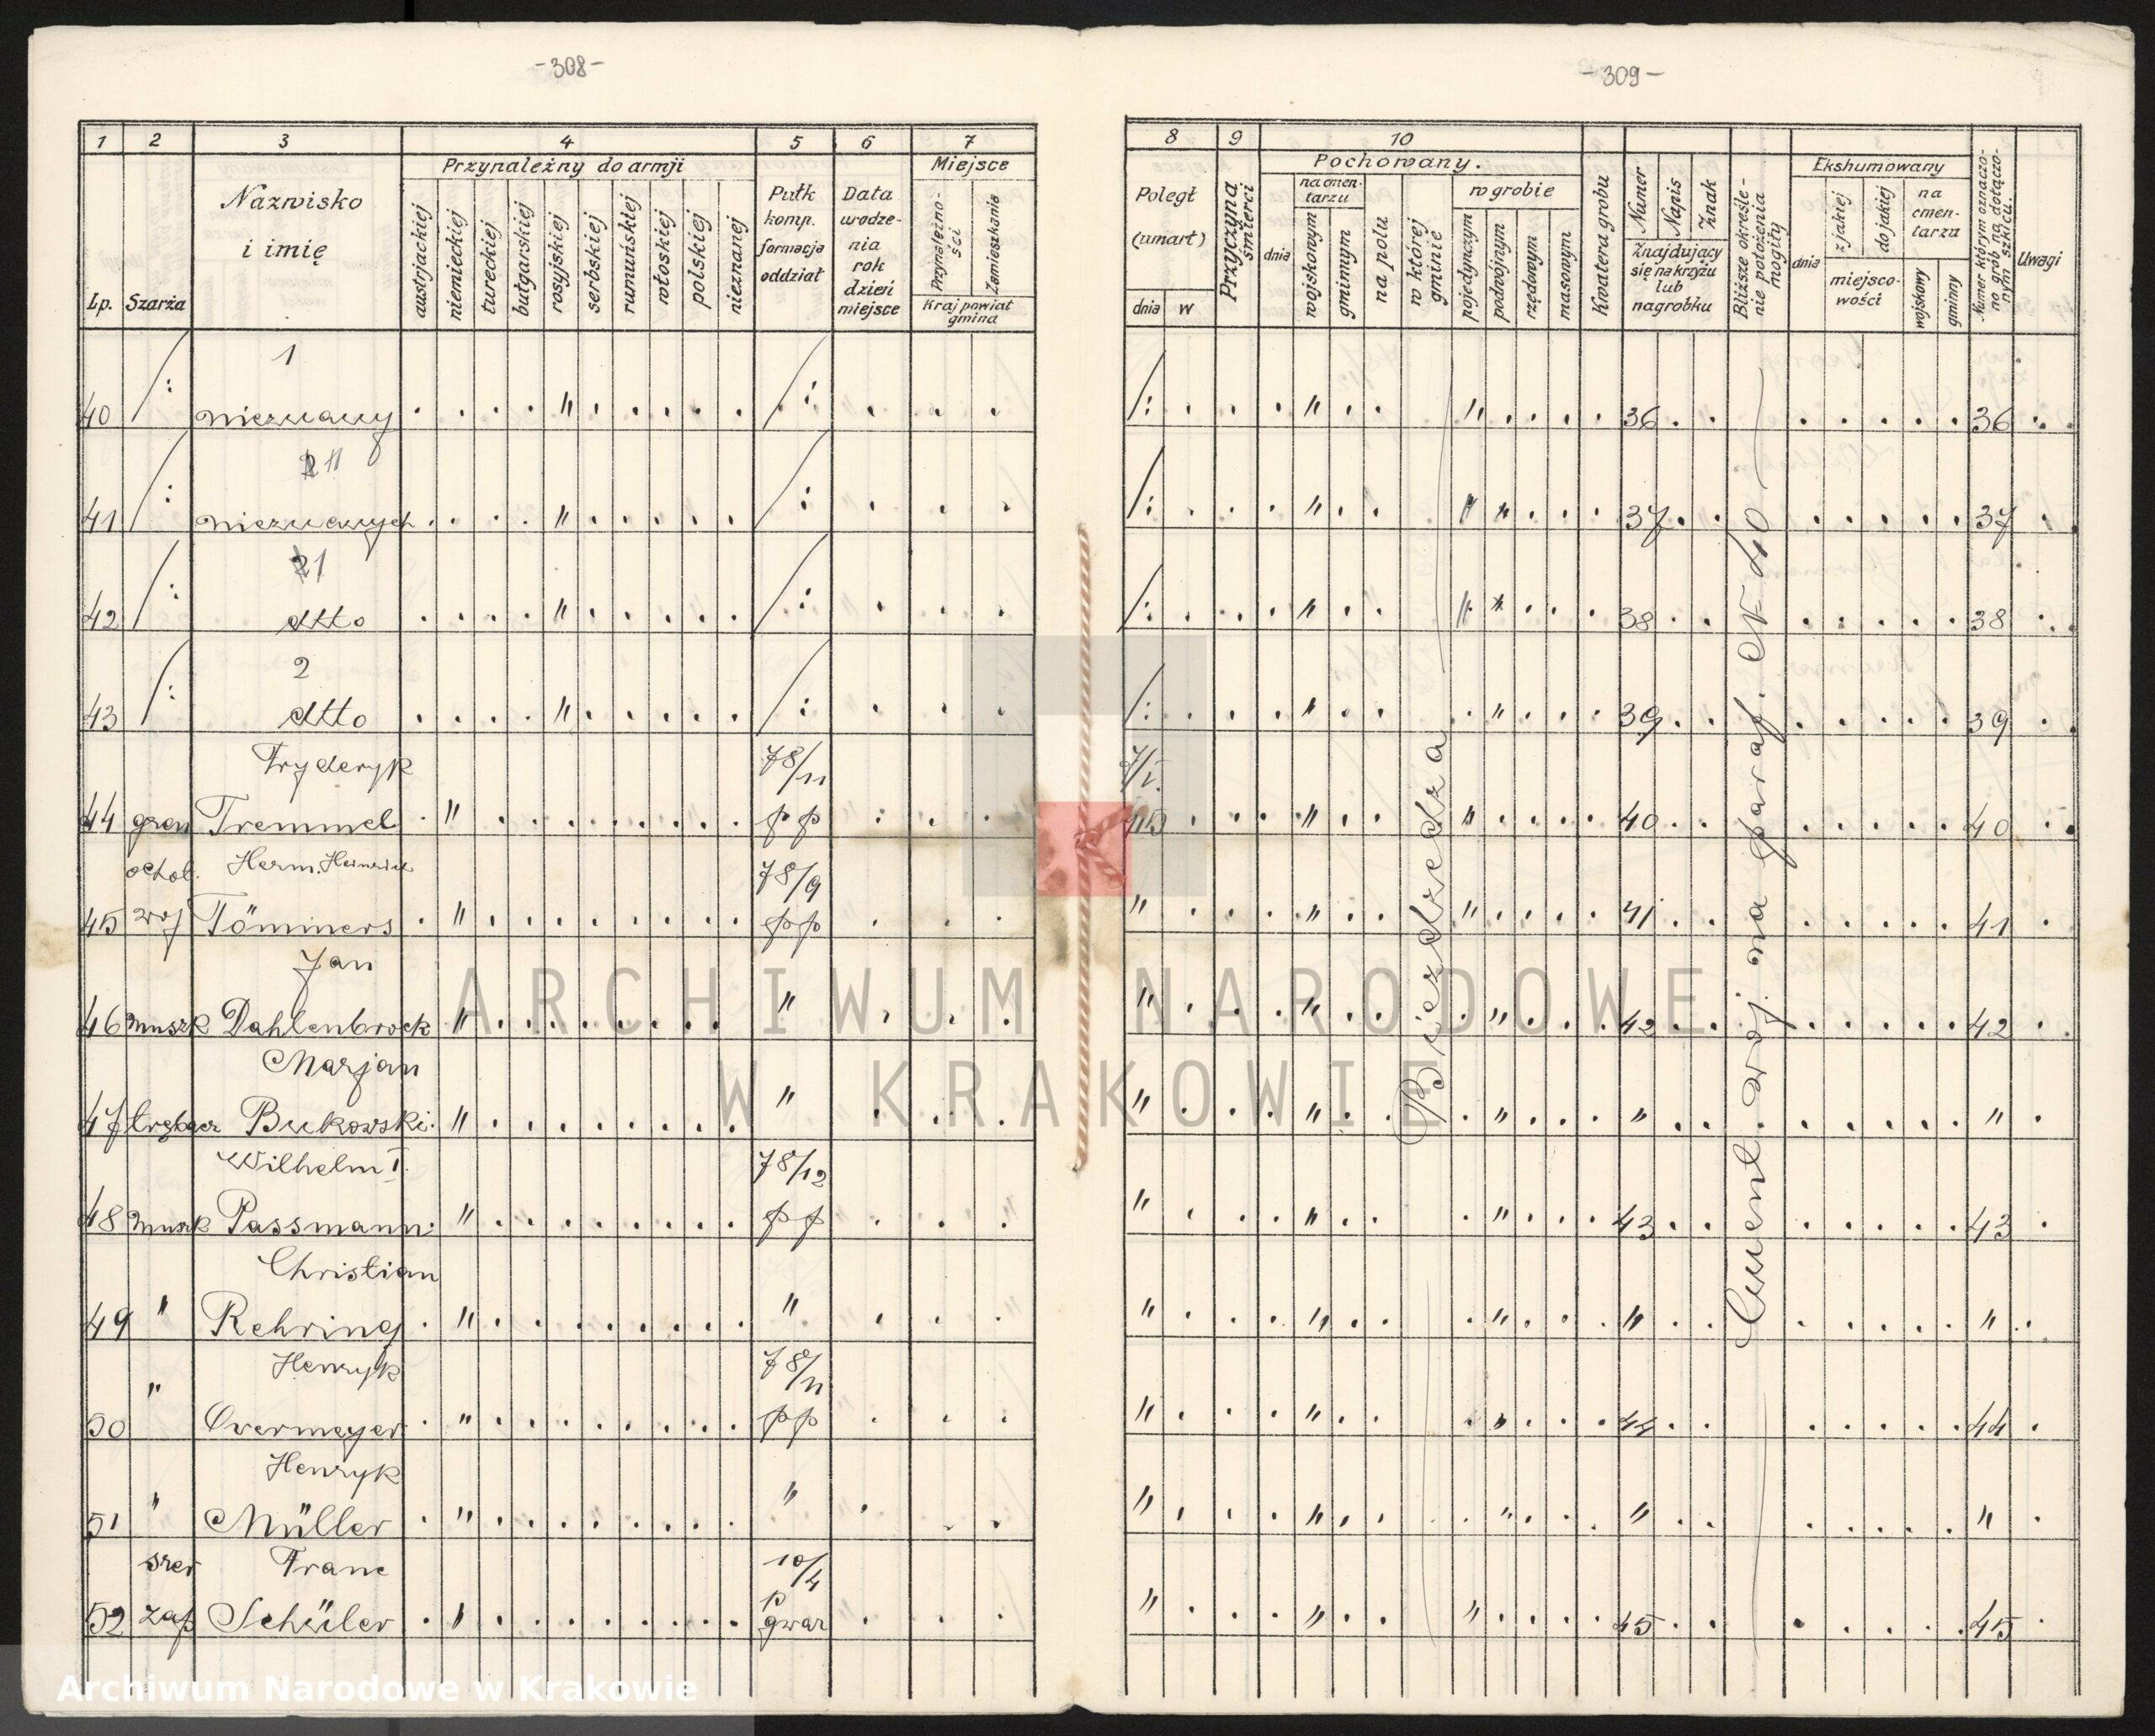 -308-
1 2 3 4 5 6 7
Lp. Szarża Nazwisko i imię
Przynależny do armji
austrjackiej niemieckiej tureckiej bułgarskiej rosyjskiej serbskiej rumuńskiej włoskiej polskiej nieznanej
Pułk komp. formacja oddział
Data urodzenia rok dzień miejsce
Miejsce
Przynależności Zamieszkania
Kraj powiat gmina
1
40 /: nieznany . . . . " . . . . . /: . . .
11
41 /: nieznanych . . . . " . . . . . /: . . .
1
42 /: dtto . . . . " . . . . . /: . . .
2
43 /: dtto . . . . " . . . . . /: . . .
Fryderyk 78/11
44 gren Tremmel . " . . . . . . . . pp : . .
ochot. Herm. Heinrich 78/9
45 woj Tömmers . " . . . . . . . . pp . . .
Jan
46 muszk Dahlenbrock " . . . . . . . . " . . .
Marjan
47 trębacz Bukowski . " . . . . . . . . " . . .
Wilhelm I. 78/12
48 muszk Passmann . " . . . . . . . . pp . . .
Christian
49 " Rehring . " . . . . . . . . " . . .
Henryk 78/11
50 " Overmeyer . " . . . . . . . . pp . . .
Henryk
51 " Müller . " . . . . . . . . " . . .
szer Franc 10/4
52 zap Schüler . " . . . . . . . . p gwar . . .
-309-
8 9 10
Poległ (umarł)
dnia w
Przyczyna śmierci
Pochowany.
dnia
na cmentarzu
wojskowym gminnym
na polu
w której gminie
w grobie
pojedynczym podwójnym rzędowym masowym
Kwatera grobu
Numer Napis Znak
Znajdujący się na krzyżu lub nagrobku
Bliższe określenie położenia mogiły
Ekshumowany
dnia
z jakiej do jakiej
miejscowości
na cmentarzu
wojskowy gminny
Numer którym oznaczono grób na dołączonym szkicu.
Uwagi
/: . . . " . . " . . . . 36 . . . . . . . 36 .
/: . . . " . . " . . . 37 . . . . . . . 37 .
/: . . . " . . " . . . 38 . . . . . . . 38 .
/: . . . " . . . " . . . 39 . . . . . . . 39 .
7/I. 915 . . . " . . " . . . . 40 . . . . . . . 40 .
" . . . " . . " . . . . 41 . . . . . . . 41 .
" . . . " . . . " . . . 42 . . . . . . . 42 .
" . . . " . . . " . . . " . . . . . . . " .
" . . . " . . . " . . . 43 . . . . . . . 43 .
" . . . " . . . " . . . " . . . . . . . " .
" . . . " . . . " . . . 44 . . . . . . . 44 .
" . . . " . . . " . . . " . . . . . . . " .
" . . . " . . " . . . . 45 . . . . . . . 45 .
Biezdziedza
Cment. woj. na paraf. Nr 40
ARCHIWUM NARODOWE
W KRAKOWIE
Archiwum Narodowe w Krakowie